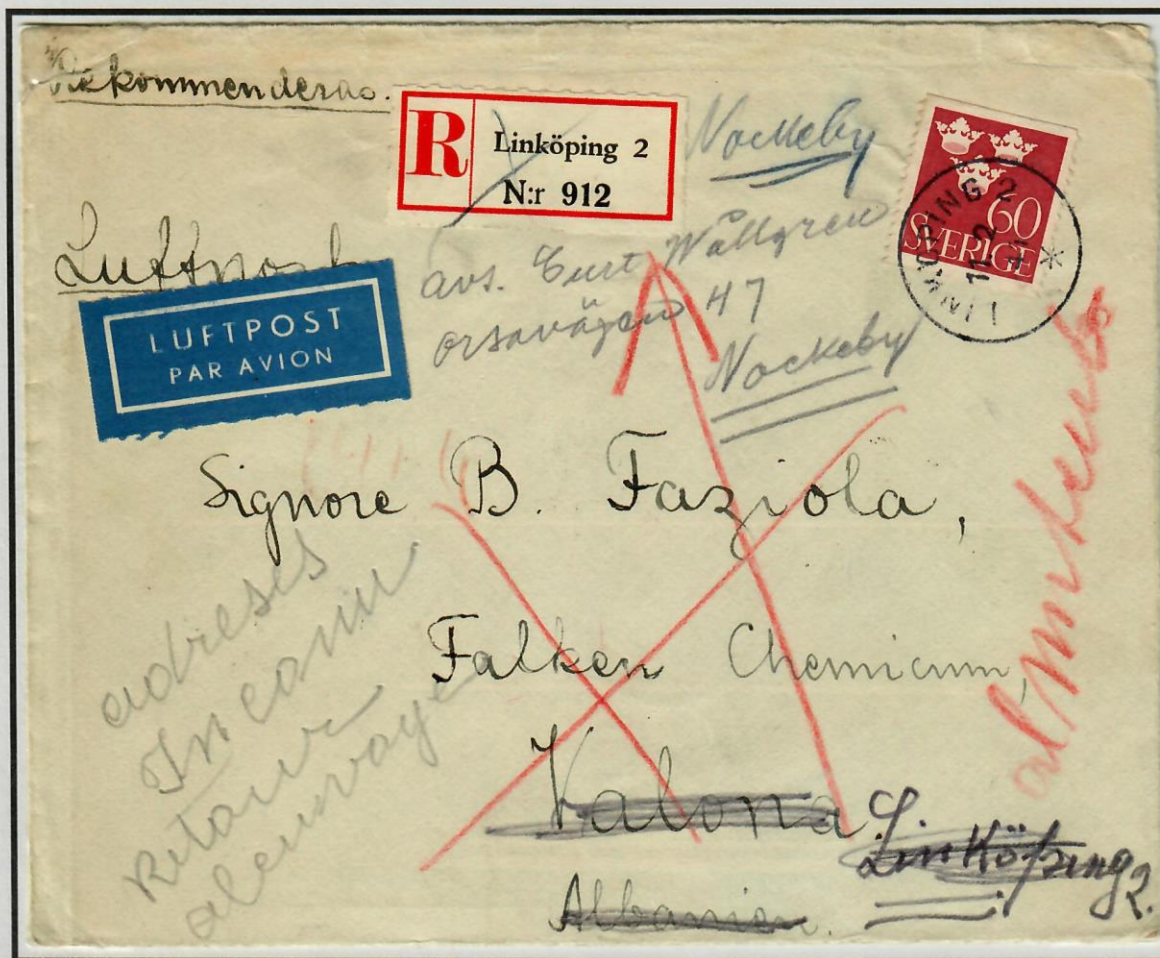 Rekommenderas.
R Linköping 2
N:r 912
Nockeby
60
SVERIGE
LINKÖPING 2
11.2
Luftpost
LUFTPOST
PAR AVION
avs. Curt Wallgren
orsavägen 47
Nockeby
Signore B. Faziola,
Falken Chemicum,
Valona
Albanien.
Linköping 2.
adreses
Inconnu
Retour